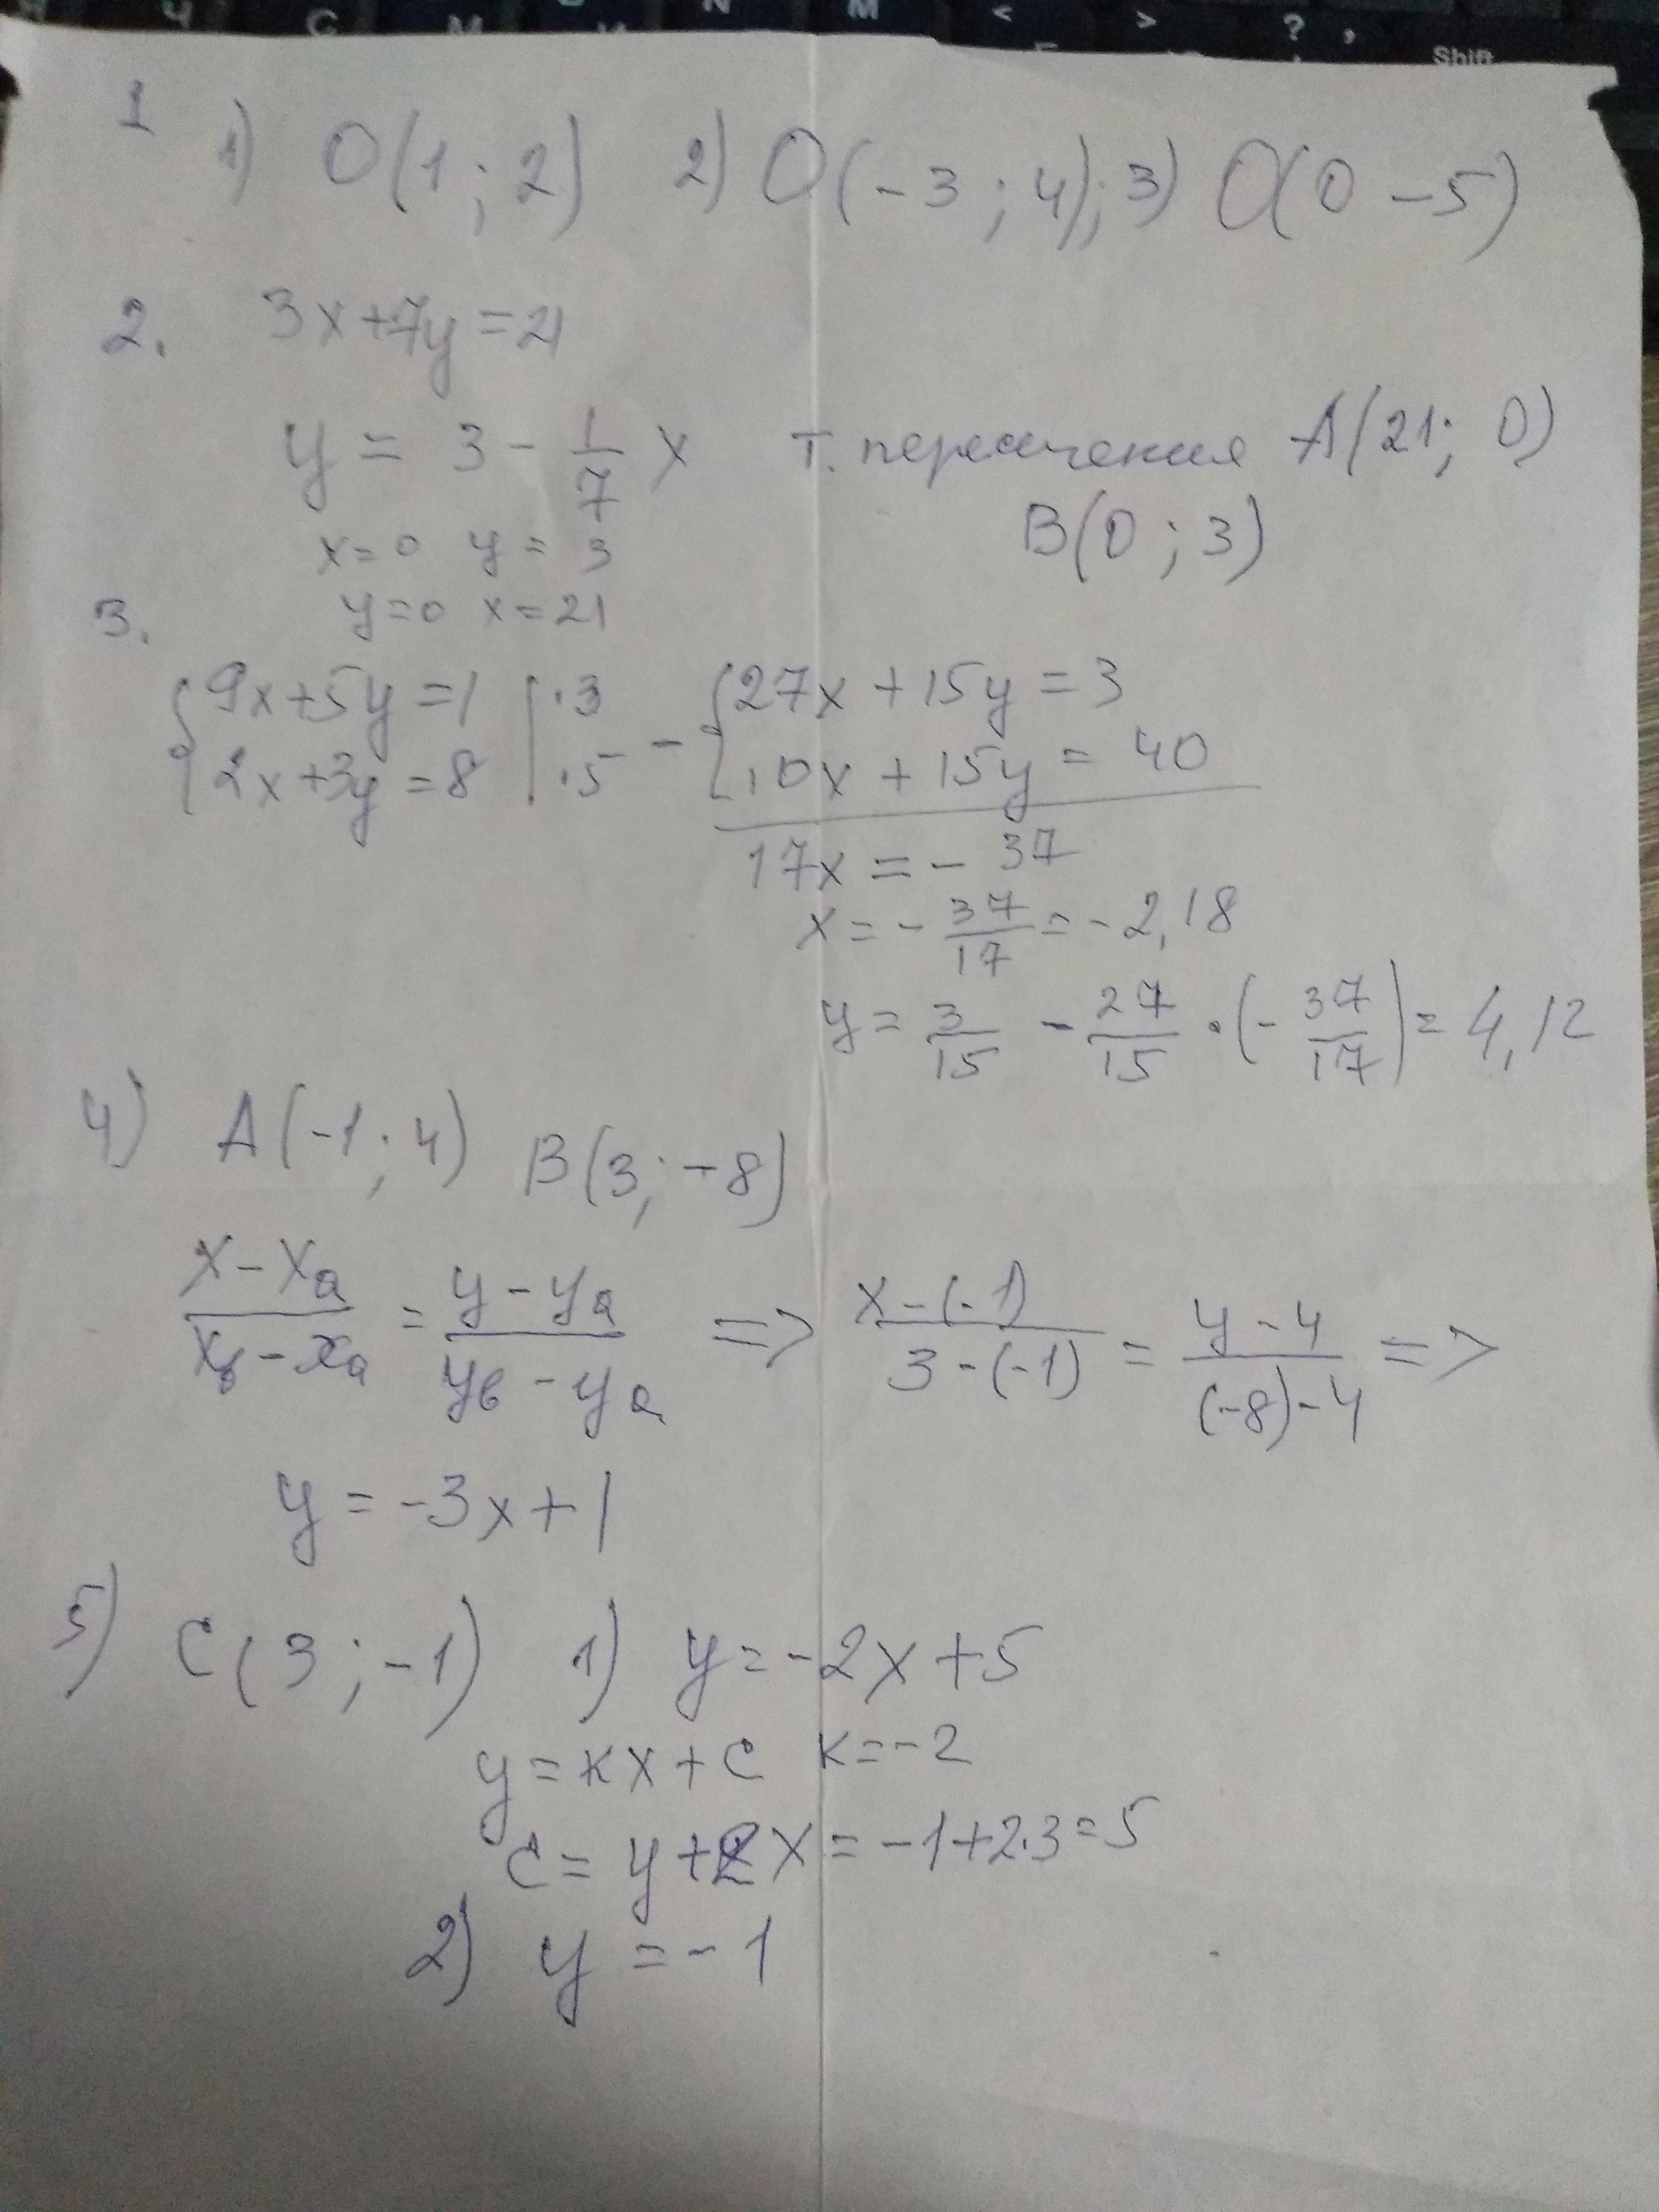 Ч Ч С М И N М < > ? , Shift
1
1) O(1 ; 2) 2) O(-3 ; 4); 3) O(0 -5)
2. 3x+7y=21
y = 3 - 1/7 x т. пересечения A(21; 0)
B(0 ; 3)
x=0 y = 3
y=0 x=21
3.
{9x+5y=1 | ·3 - {27x+15y=3
{2x+3y=8 | ·5 {10x+15y=40
17x = -37
x = - 37/17 = -2,18
y = 3/15 - 27/15 · (- 37/17) = 4,12
4) A(-1; 4) B(3; -8)
(x-xa)/(xв-xa) = (y-ya)/(yв-ya) => (x-(-1))/(3-(-1)) = (y-4)/((-8)-4) =>
y = -3x+1
5) C(3; -1) 1) y=-2x+5
y=кx+c к=-2
c= y+2x=-1+2·3=5
2) y = -1